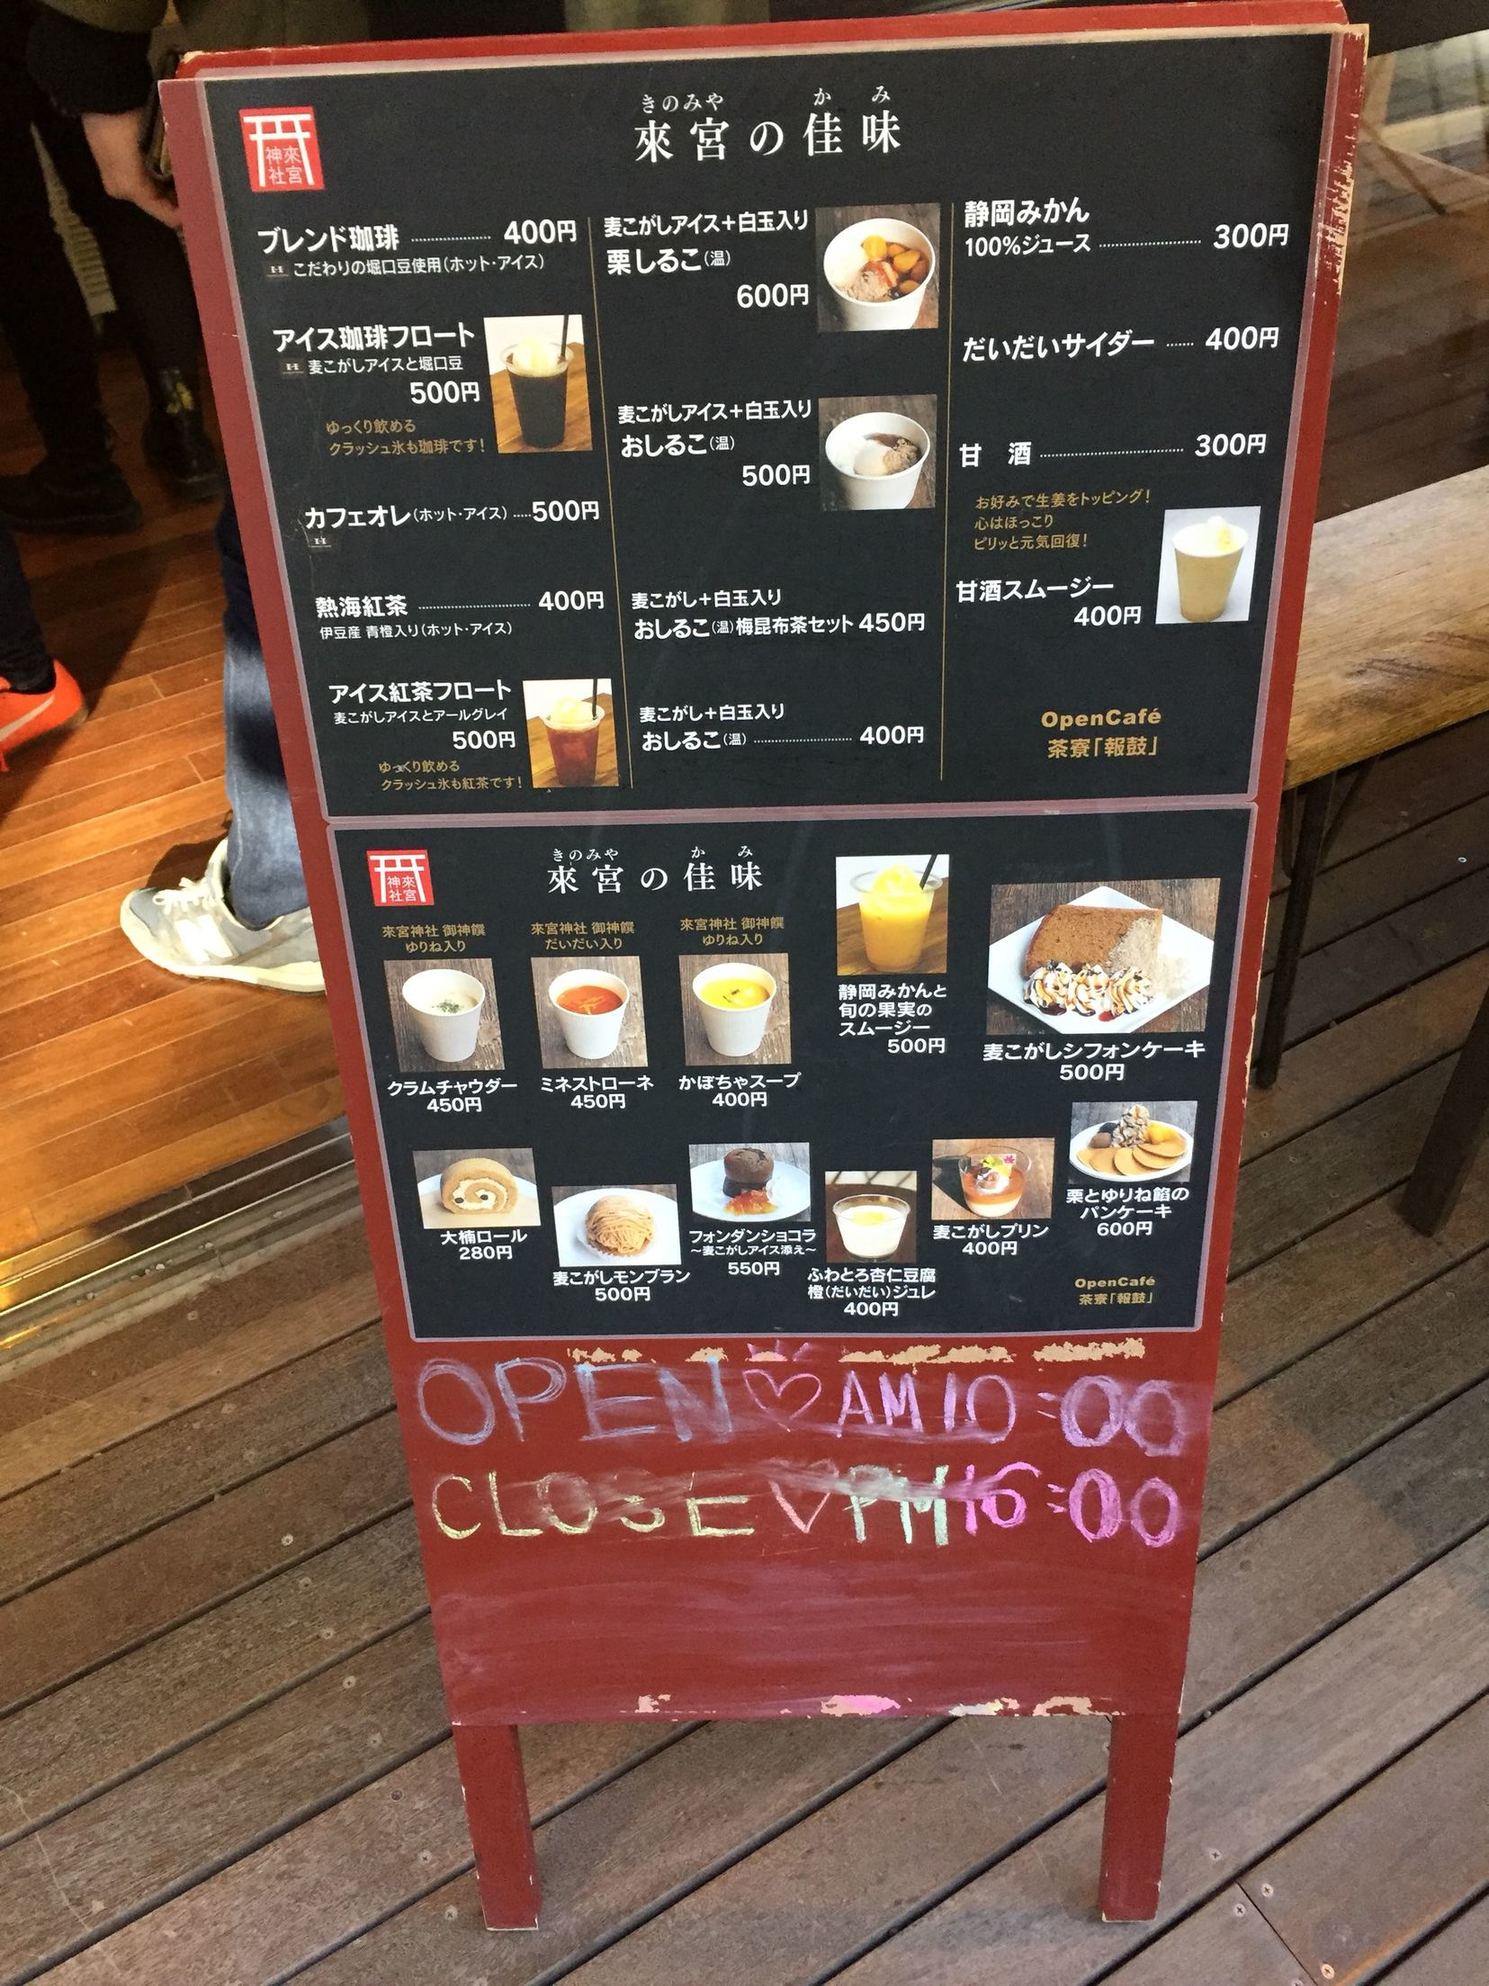 きのみや か み
來宮の佳味
來宮
神社
ブレンド珈琲 400円
こだわりの堀口豆使用(ホット・アイス)
アイス珈琲フロート
麦こがしアイスと堀口豆
500円
ゆっくり飲める
クラッシュ氷も珈琲です!
カフェオレ(ホット・アイス) 500円
熱海紅茶 400円
伊豆産 青橙入り(ホット・アイス)
アイス紅茶フロート
麦こがしアイスとアールグレイ
500円
ゆっくり飲める
クラッシュ氷も紅茶です!
麦こがしアイス+白玉入り
栗しるこ(温)
600円
麦こがしアイス+白玉入り
おしるこ(温)
500円
麦こがし+白玉入り
おしるこ(温)梅昆布茶セット 450円
麦こがし+白玉入り
おしるこ(温) 400円
静岡みかん
100%ジュース 300円
だいだいサイダー 400円
甘 酒 300円
お好みで生姜をトッピング!
心はほっこり
ピリッと元気回復!
甘酒スムージー
400円
OpenCafé
茶寮「報鼓」
來宮
神社
きのみや か み
來宮の佳味
來宮神社 御神饌
ゆりね入り
クラムチャウダー
450円
來宮神社 御神饌
だいだい入り
ミネストローネ
450円
來宮神社 御神饌
ゆりね入り
かぼちゃスープ
400円
静岡みかんと
旬の果実の
スムージー
500円
麦こがしシフォンケーキ
500円
大楠ロール
280円
麦こがしモンブラン
500円
フォンダンショコラ
〜麦こがしアイス添え〜
550円
ふわとろ杏仁豆腐
橙(だいだい)ジュレ
400円
麦こがしプリン
400円
栗とゆりね餡の
パンケーキ
600円
OpenCafé
茶寮「報鼓」
OPEN♡AM10:00
CLOSE♡PM16:00